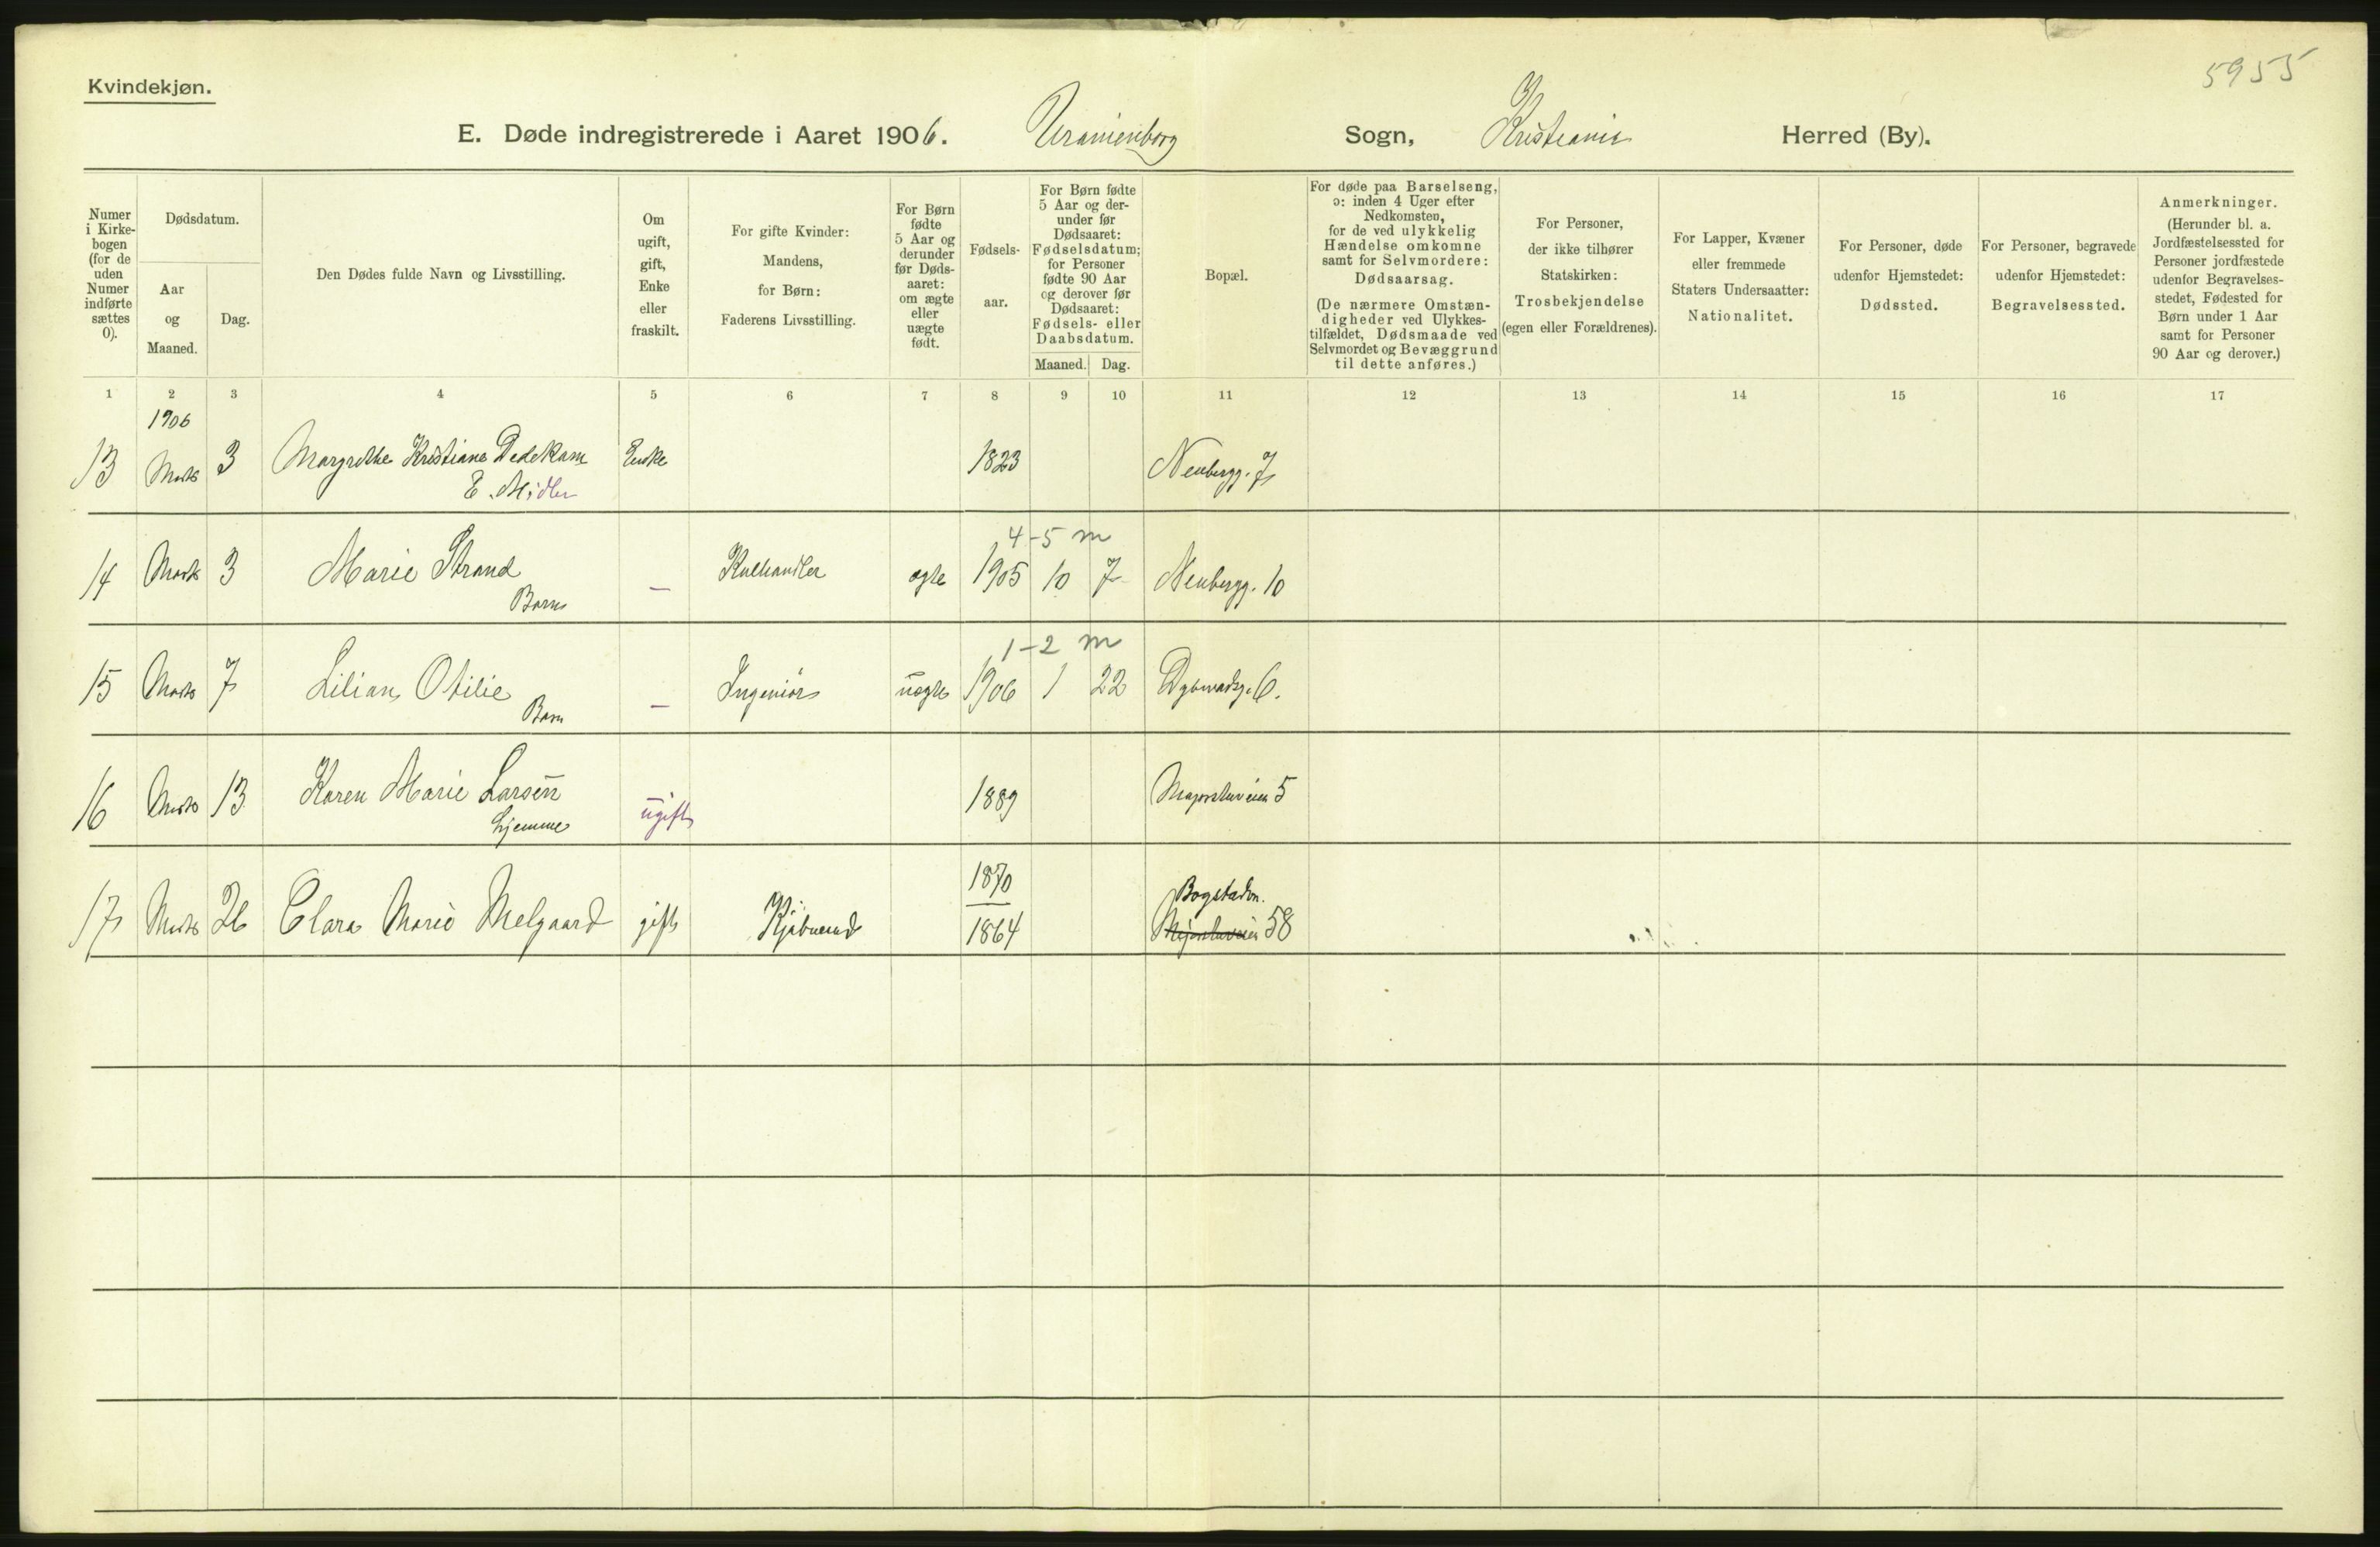 5955
Kvindekjøn.
E. Døde indregistrerede i Aaret 1906. Uranienborg Sogn, Kristiania Herred (By).
Numer i Kirkebogen (for de uden Numer indførte sættes 0).
Dødsdatum.
Aar og Maaned.
Dag.
Den Dødes fulde Navn og Livsstilling.
Om ugift, gift, Enke eller fraskilt.
For gifte Kvinder: Mandens, for Børn: Faderens Livsstilling.
For Børn fødte 5 Aar og derunder før Dødsaaret: om ægte eller uægte født.
Fødselsaar.
For Børn fødte 5 Aar og derunder før Dødsaaret: Fødselsdatum; for Personer fødte 90 Aar og derover før Dødsaaret: Fødsels- eller Daabsdatum.
Maaned. Dag.
Bopæl.
For døde paa Barselseng, ɔ: inden 4 Uger efter Nedkomsten, for de ved ulykkelig Hændelse omkomne samt for Selvmordere: Dødsaarsag. (De nærmere Omstændigheder ved Ulykkestilfældet, Dødsmaade ved Selvmordet og Bevæggrund til dette anføres.)
For Personer, der ikke tilhører Statskirken: Trosbekjendelse (egen eller Forældrenes).
For Lapper, Kvæner eller fremmede Staters Undersaatter: Nationalitet.
For Personer, døde udenfor Hjemstedet: Dødssted.
For Personer, begravede udenfor Hjemstedet: Begravelsessted.
Anmerkninger. (Herunder bl. a. Jordfæstelsessted for Personer jordfæstede udenfor Begravelsesstedet, Fødested for Børn under 1 Aar samt for Personer 90 Aar og derover.)
1 2 3 4 5 6 7 8 9 10 11 12 13 14 15 16 17
1906
13 Marts 3 Margrethe Kristiane Dedekam Enke 1823 Neubergg. 7
E. Midler
4-5 m
14 Marts 3 Marie Strand — Kulhandler ægte 1905 10 7 Neubergg. 10
Barn
1-2 m
15 Marts 7 Lilian Otilie — Ingeniör uægte 1906 1 22 6.
Barn
16 Marts 13 Karen Marie Larsen ugift 1889 Majorstuveien 5
hjemme
1870 Bogstadvn.
17 Marts 26 Clara Marie Melgaard gift Kjøbmand 1864 Majorstuveien 58